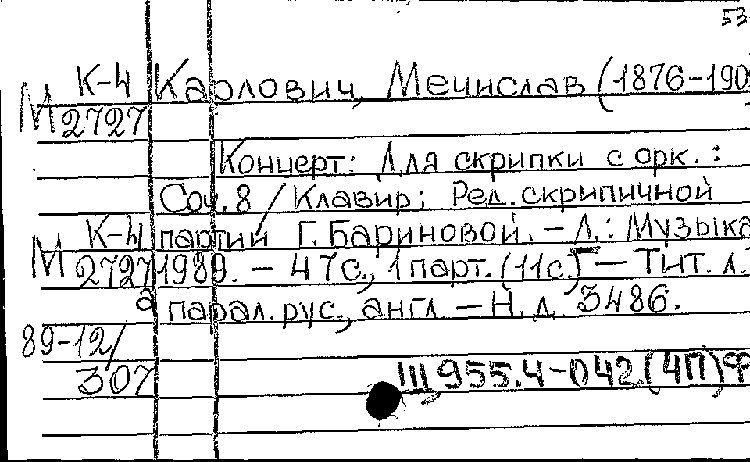 53
К-4 Карлович, Мечислав (1876-190
М 2727
Концерт: Для скрипки с орк. :
Соч. 8 / Клавир; Ред. скрипичной
К-4 партии Г. Бариновой. – Л.: Музыка
М 2727 1989. – 47с., 1 парт. (11с) – Тит. л.
а парал. рус., англ. – Н. д. 3486.
89-12/
307
Щ955.4-042.(4П)Ф